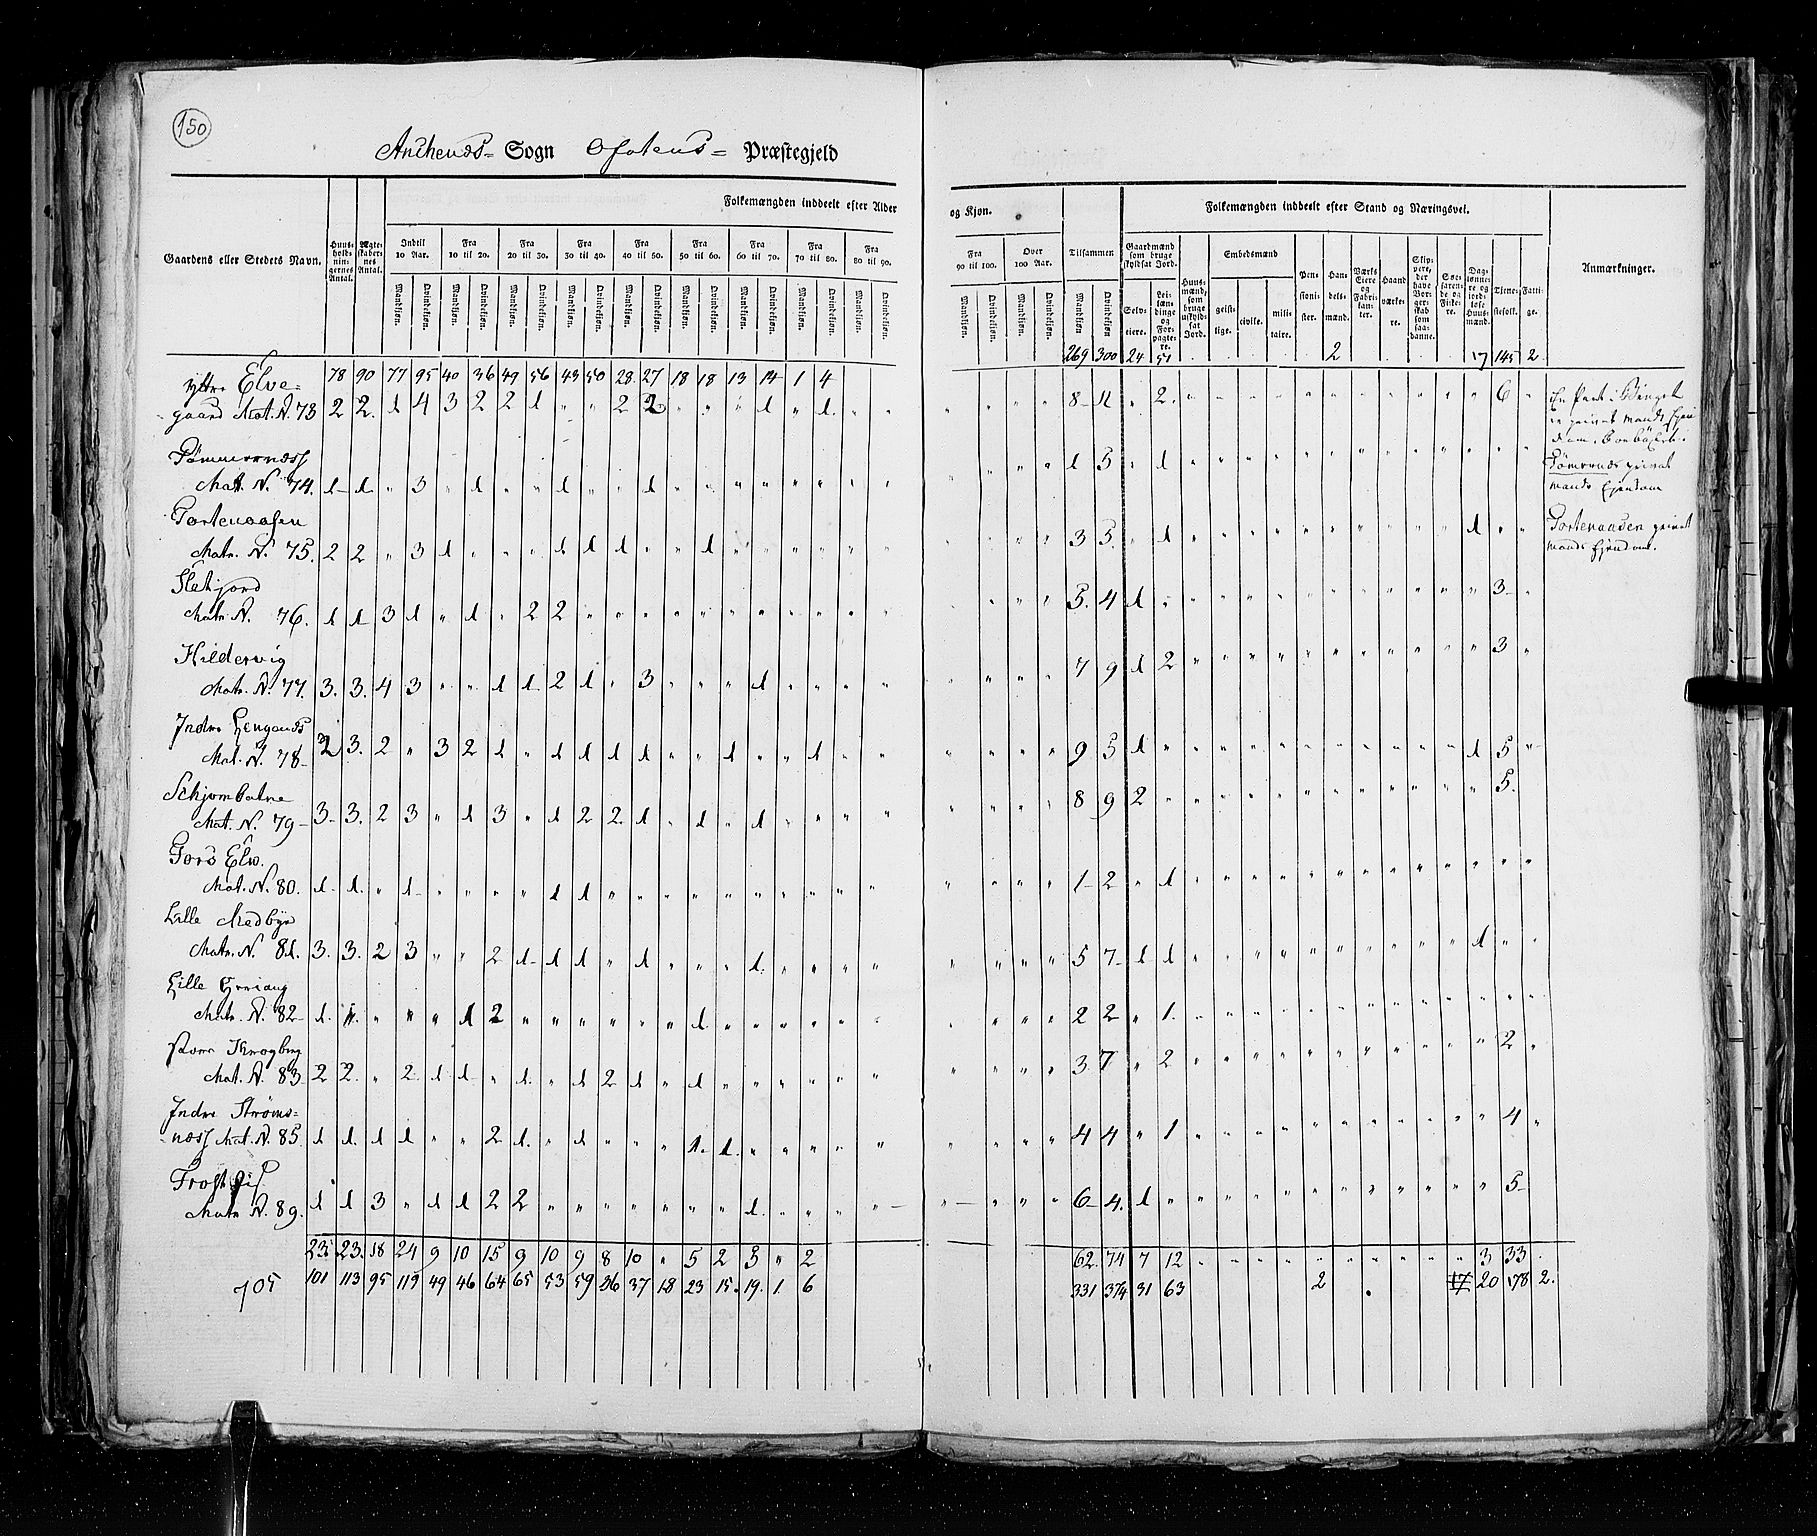 150
Anchenæs- Sogn Ofotens- Præstegjeld
Folkemængden inddeelt efter Alder og Kjøn.
Folkemængden inddeelt efter Stand og Næringsvei.
Gaardens eller Stedets Navn. Huusholdningernes Antal. Ægteskabernes Antal. Indtil 10 Aar. Fra 10 til 20. Fra 20 til 30. Fra 30 til 40. Fra 40 til 50. Fra 50 til 60. Fra 60 til 70. Fra 70 til 80. Fra 80 til 90. Fra 90 til 100. Over 100 Aar. Tilsammen Gaardmænd som bruge skyldsat Jord. Huusmænd, som bruge uskyldsat Jord. Embedsmænd Pensionister. Handelsmænd. Værks Eiere og Fabrikanter. Haandværkere. Skippere, der have Borgerskab som saadanne. Søefarende og Fiskere. Daglønnere og jordløse Huusmænd. Tjenestefolk. Fattige. Anmærkninger.
Mandkjøn. Qvindekjøn. Mandkjøn. Qvindekjøn. Mandkjøn. Qvindekjøn. Mandkjøn. Qvindekjøn. Mandkjøn. Qvindekjøn. Mandkjøn. Qvindekjøn. Mandkjøn. Qvindekjøn. Mandkjøn. Qvindekjøn. Mandkjøn. Qvindekjøn. Mandkjøn. Qvindekjøn. Mandkjøn. Qvindekjøn. Mandkjøn Qvindekjøn Selveiere. Leilændinge og Forpagtere. geistlige. civile. militaire.
78 90 77 95 40 36 49 56 43 50 28 27 18 18 13 14 1 4 269 300 24 51 2 17 145 2
Yttre Elve-
gaard Mat. N. 73 2 2. 1 4 3 2 2 1 " " 2 2 " " " 1 " 1 8 11 " 2. 6
Tømmernæss
Mat. N. 74. 1 1 " 3 " 1 " " 1 " " 1 1 5 " 1 Tømernæs privat
mands Ejendom
Tortenaasen
Matr. N. 75. 2 2 " 3 1 " " " 1 1 1 " " 1 3 5. " 1 1 Tortenaasen privat
mands Ejendom.
Sletjord
Matr N. 76. 1 1 3 1 " 1 " 2 2 5. 4 1 3
Hildervig
Matr. N. 77. 3. 3. 4 3 " " 1 1 2 1 " 3 " " " 1 7 9 1 2 3
Indre Lengenæs
Mat. N. 78 3 3. 2 " 3 2 1 " 1 1 1 1 " " 1 " " 1 9 5 1 1 5
Schjombotne
Mat. N. 79 3 3. 2 3 " 1 3 " 1 2 2 1 " 1 " 1 8 9 2 5.
Fors Elv.
Mat. N. 80. 1 1. " 1 " " " " 1 1 1 2 " 1
Lille Medbye
Matr. N. 81. 3. 3. 2 3 " " 2 1 1 1 " 1 " " " 1. 5 7 1 1 1
Lille
Matr. N. 82 1. " " " " 1 2 " " " " " " 1. 2 2 " 1.
Mat. N. 83 2 2 " 2 1 1 " 1 " 1 2 1 " 1 3 7 " 2 2
Indre Strøms-
næss Mat. N. 85 1 1. 1 1 " " 2 1. " 1 " " " 1. 1. 4 4 " 1 4
Trost
Matr N. 89. 1 1 3 " 1 1 2 2 " " " " " " " 1. 6 4. 1 5
23 23. 18 24 9 10 15 9 10 9 8 10 " 5 2 3 " 2 62. 74 7 12 3 33
705 101 113 95 119 49 46 64 65 53 59 36 37 18 23 15. 19. 1. 6 331 374 31 63 2 17 20 178 2.